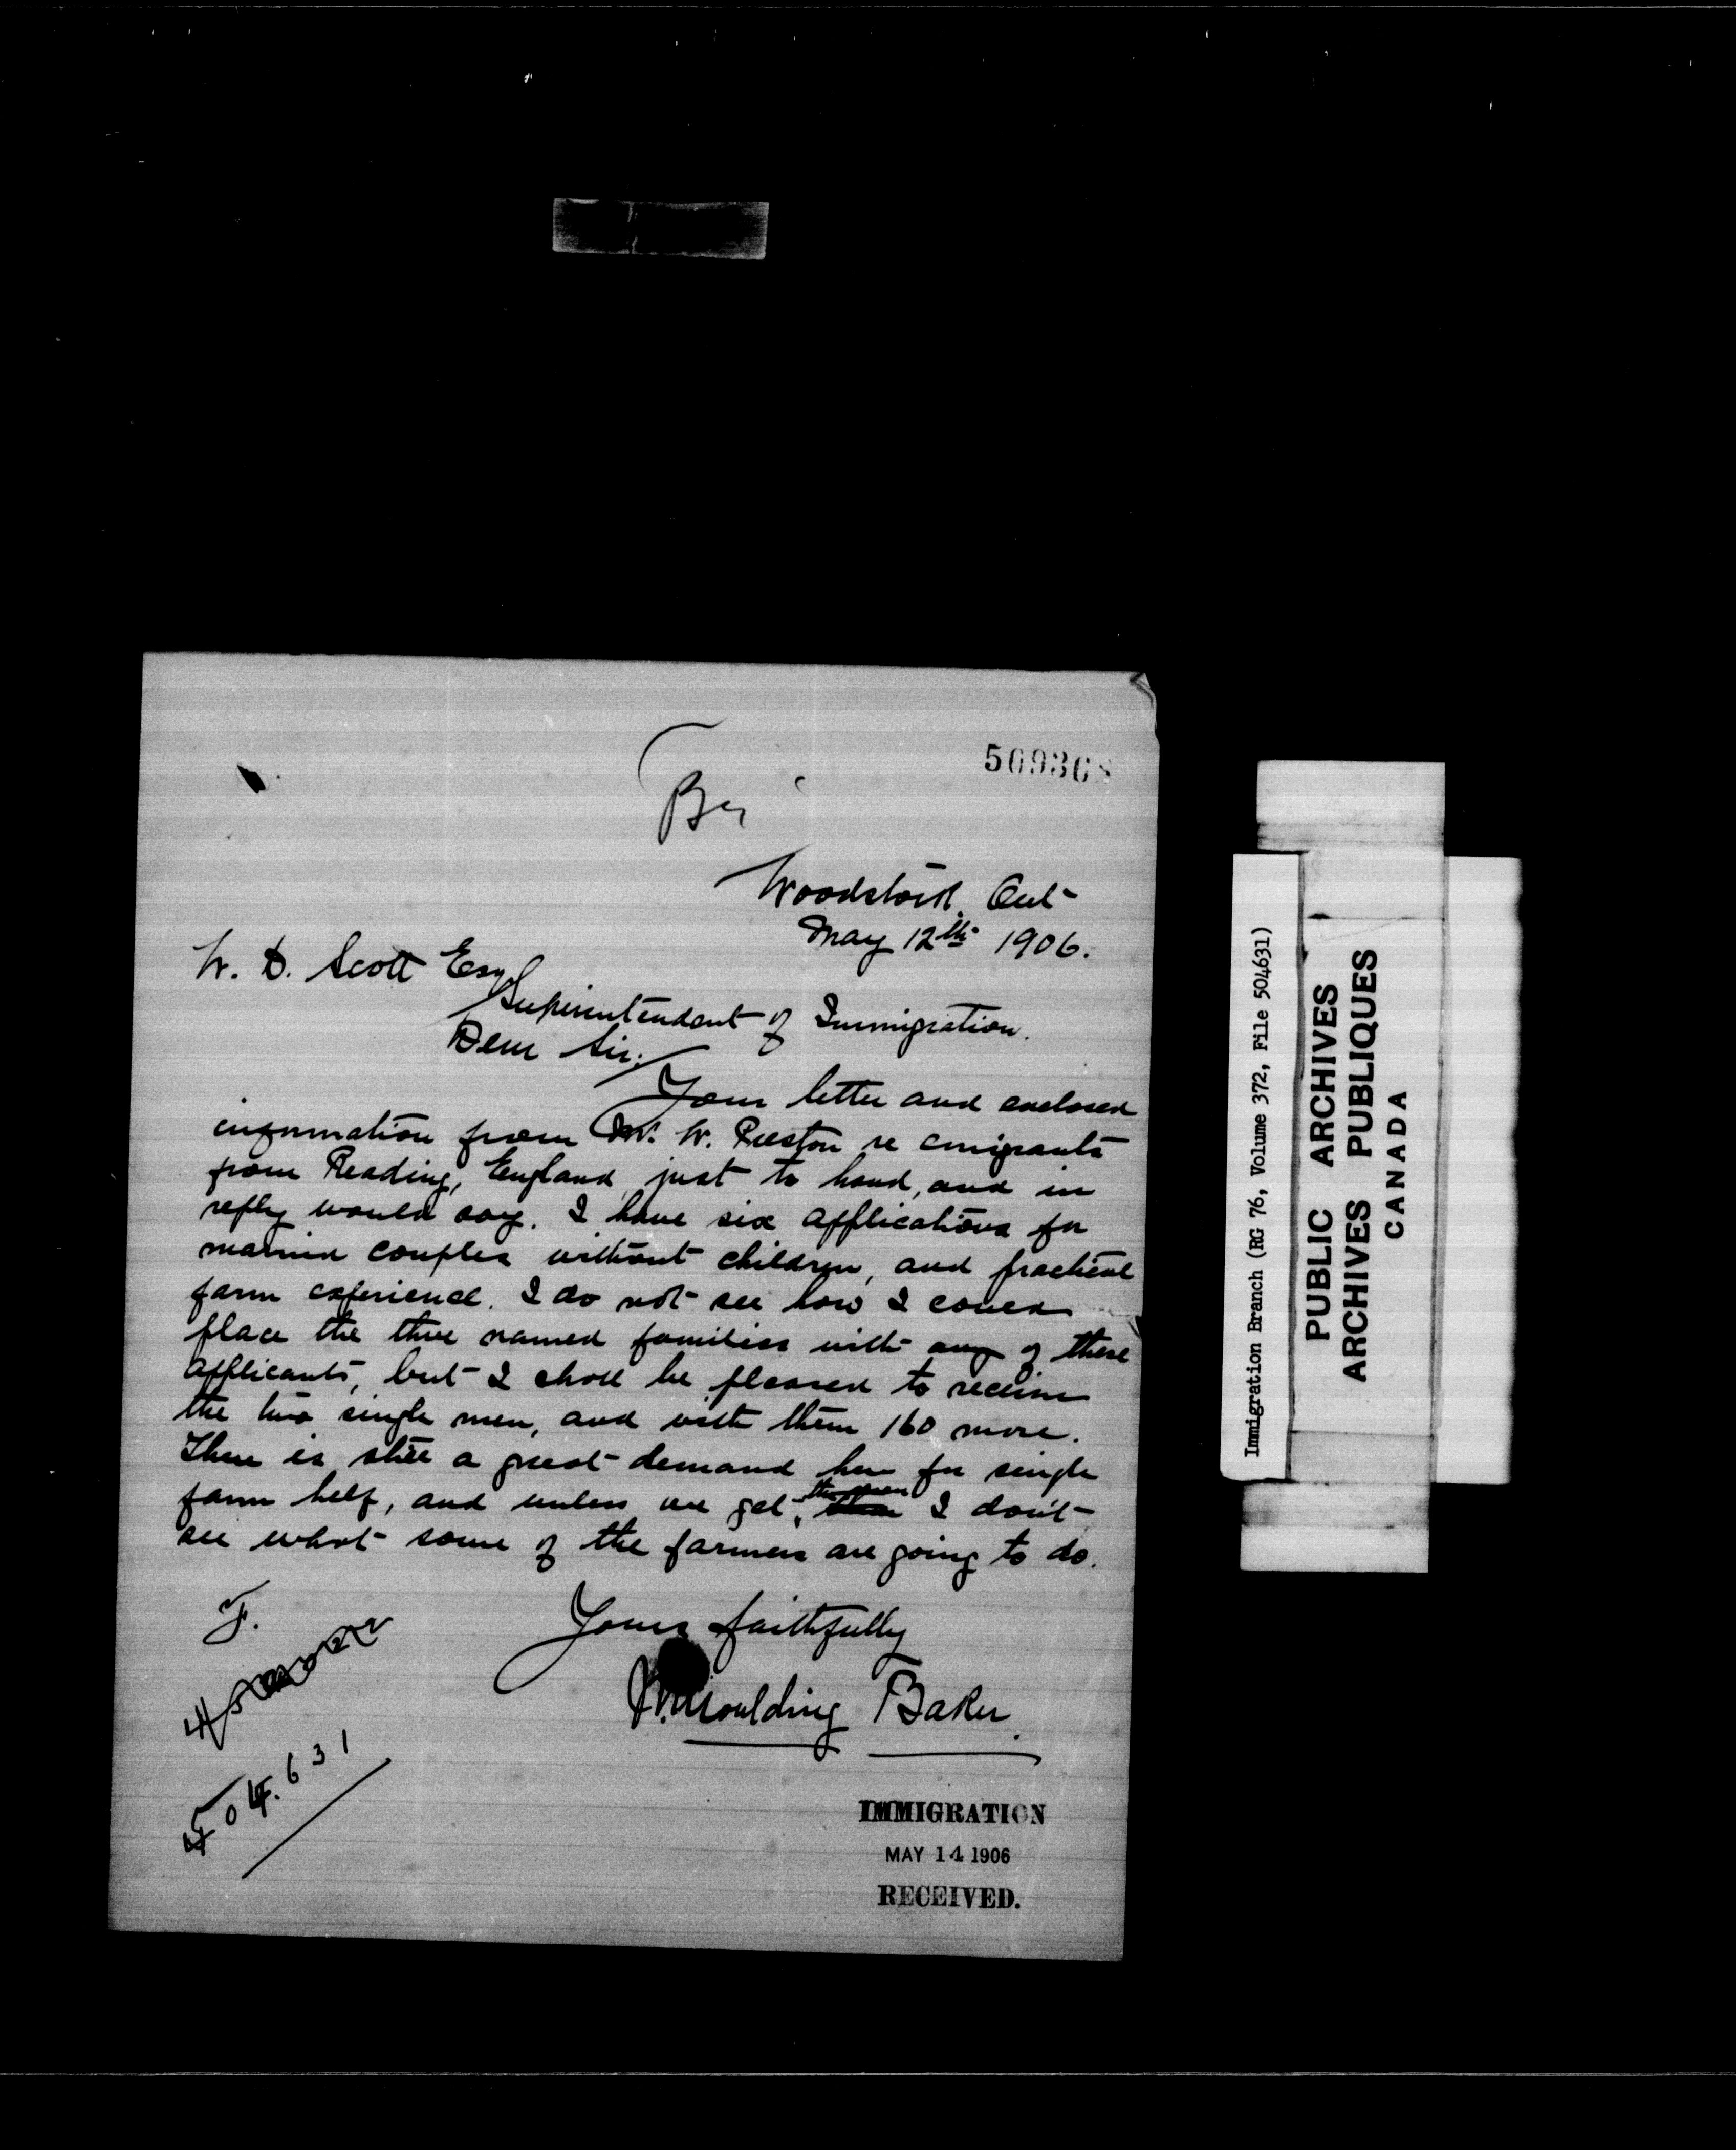 Woodstock, Ont
May 12th 1906.
W. D. Scott Esq
Superintendent of Immigration.
Dear Sir.
Your letter and enclosed
information from W. Preston re emigrants
from Reading, England, just to hand, and in
reply would say. I have six applications for
married couples without children, and practical
farm experience. I do not see how I could
place the three named families with any of these
applicants, but I shall be pleased to receive
the two single men, and with them 160 more.
There is still a great demand here for single
farm help, and unless we get the men I don't
see what some of the farmers are going to do.
Yours faithfully
Moulding Baker.
F.
504.631
IMMIGRATION
MAY 14 1906
RECEIVED.
Immigration Branch (RG 76, Volume 372, File 504631)
PUBLIC ARCHIVES
ARCHIVES PUBLIQUES
CANADA